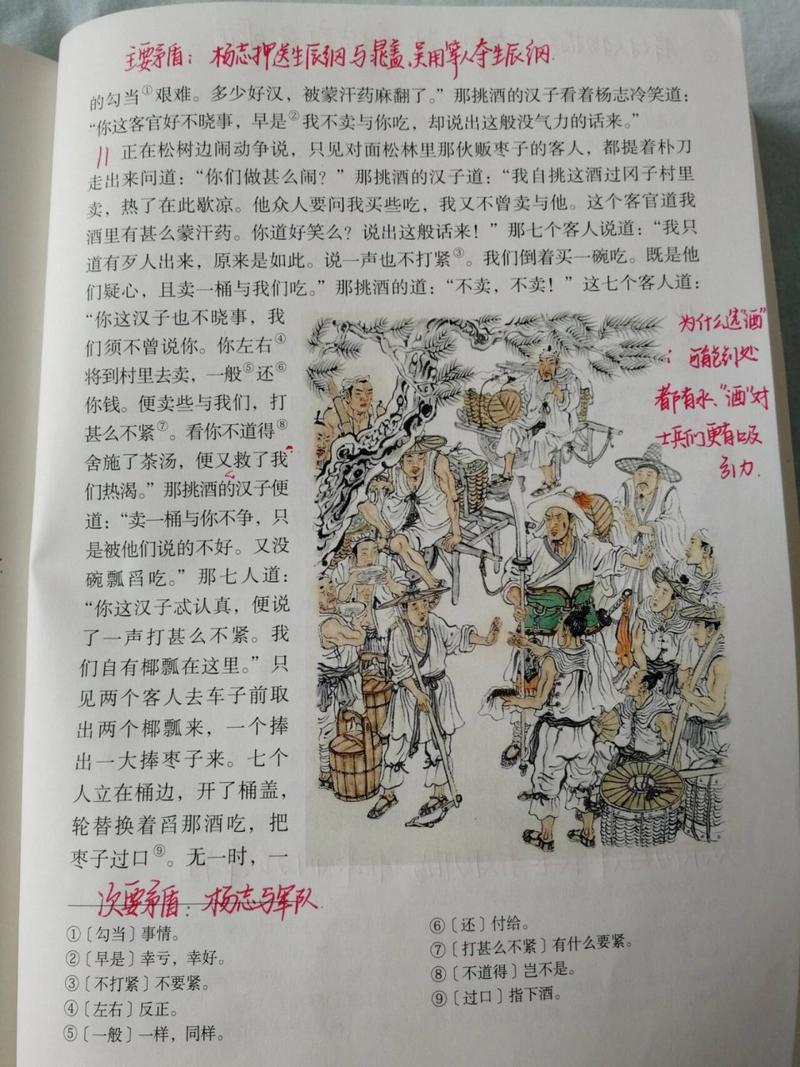 主要矛盾：杨志押送生辰纲与晁盖、吴用等人夺生辰纲.
的勾当①艰难。多少好汉，被蒙汗药麻翻了。”那挑酒的汉子看着杨志冷笑道：
“你这客官好不晓事，早是②我不卖与你吃，却说出这般没气力的话来。”
11 正在松树边闹动争说，只见对面松林里那伙贩枣子的客人，都提着朴刀
走出来问道：“你们做甚么闹？”那挑酒的汉子道：“我自挑这酒过冈子村里
卖，热了在此歇凉。他众人要问我买些吃，我又不曾卖与他。这个客官道我
酒里有甚么蒙汗药。你道好笑么？说出这般话来！”那七个客人说道：“我只
道有歹人出来，原来是如此。说一声也不打紧③。我们倒着买一碗吃。既是他
们疑心，且卖一桶与我们吃。”那挑酒的道：“不卖，不卖！”这七个客人道：
“你这汉子也不晓事，我
们须不曾说你。你左右④
将到村里去卖，一般⑤还⑥
你钱。便卖些与我们，打
甚么不紧⑦。看你不道得⑧
舍施了茶汤，便又救了我
们热渴。”那挑酒的汉子便
道：“卖一桶与你不争，只
是被他们说的不好。又没
碗瓢舀吃。”那七人道：
“你这汉子忒认真，便说
了一声打甚么不紧。我
们自有椰瓢在这里。”只
见两个客人去车子前取
出两个椰瓢来，一个捧
出一大捧枣子来。七个
人立在桶边，开了桶盖，
轮替换着舀那酒吃，把
枣子过口⑨。无一时，一
为什么选“酒”
：可能到处
都有水、“酒”对
士兵们更有吸
引力.
次要矛盾：杨志与军队
①〔勾当〕事情。
②〔早是〕幸亏，幸好。
③〔不打紧〕不要紧。
④〔左右〕反正。
⑤〔一般〕一样，同样。
⑥〔还〕付给。
⑦〔打甚么不紧〕有什么要紧。
⑧〔不道得〕岂不是。
⑨〔过口〕指下酒。